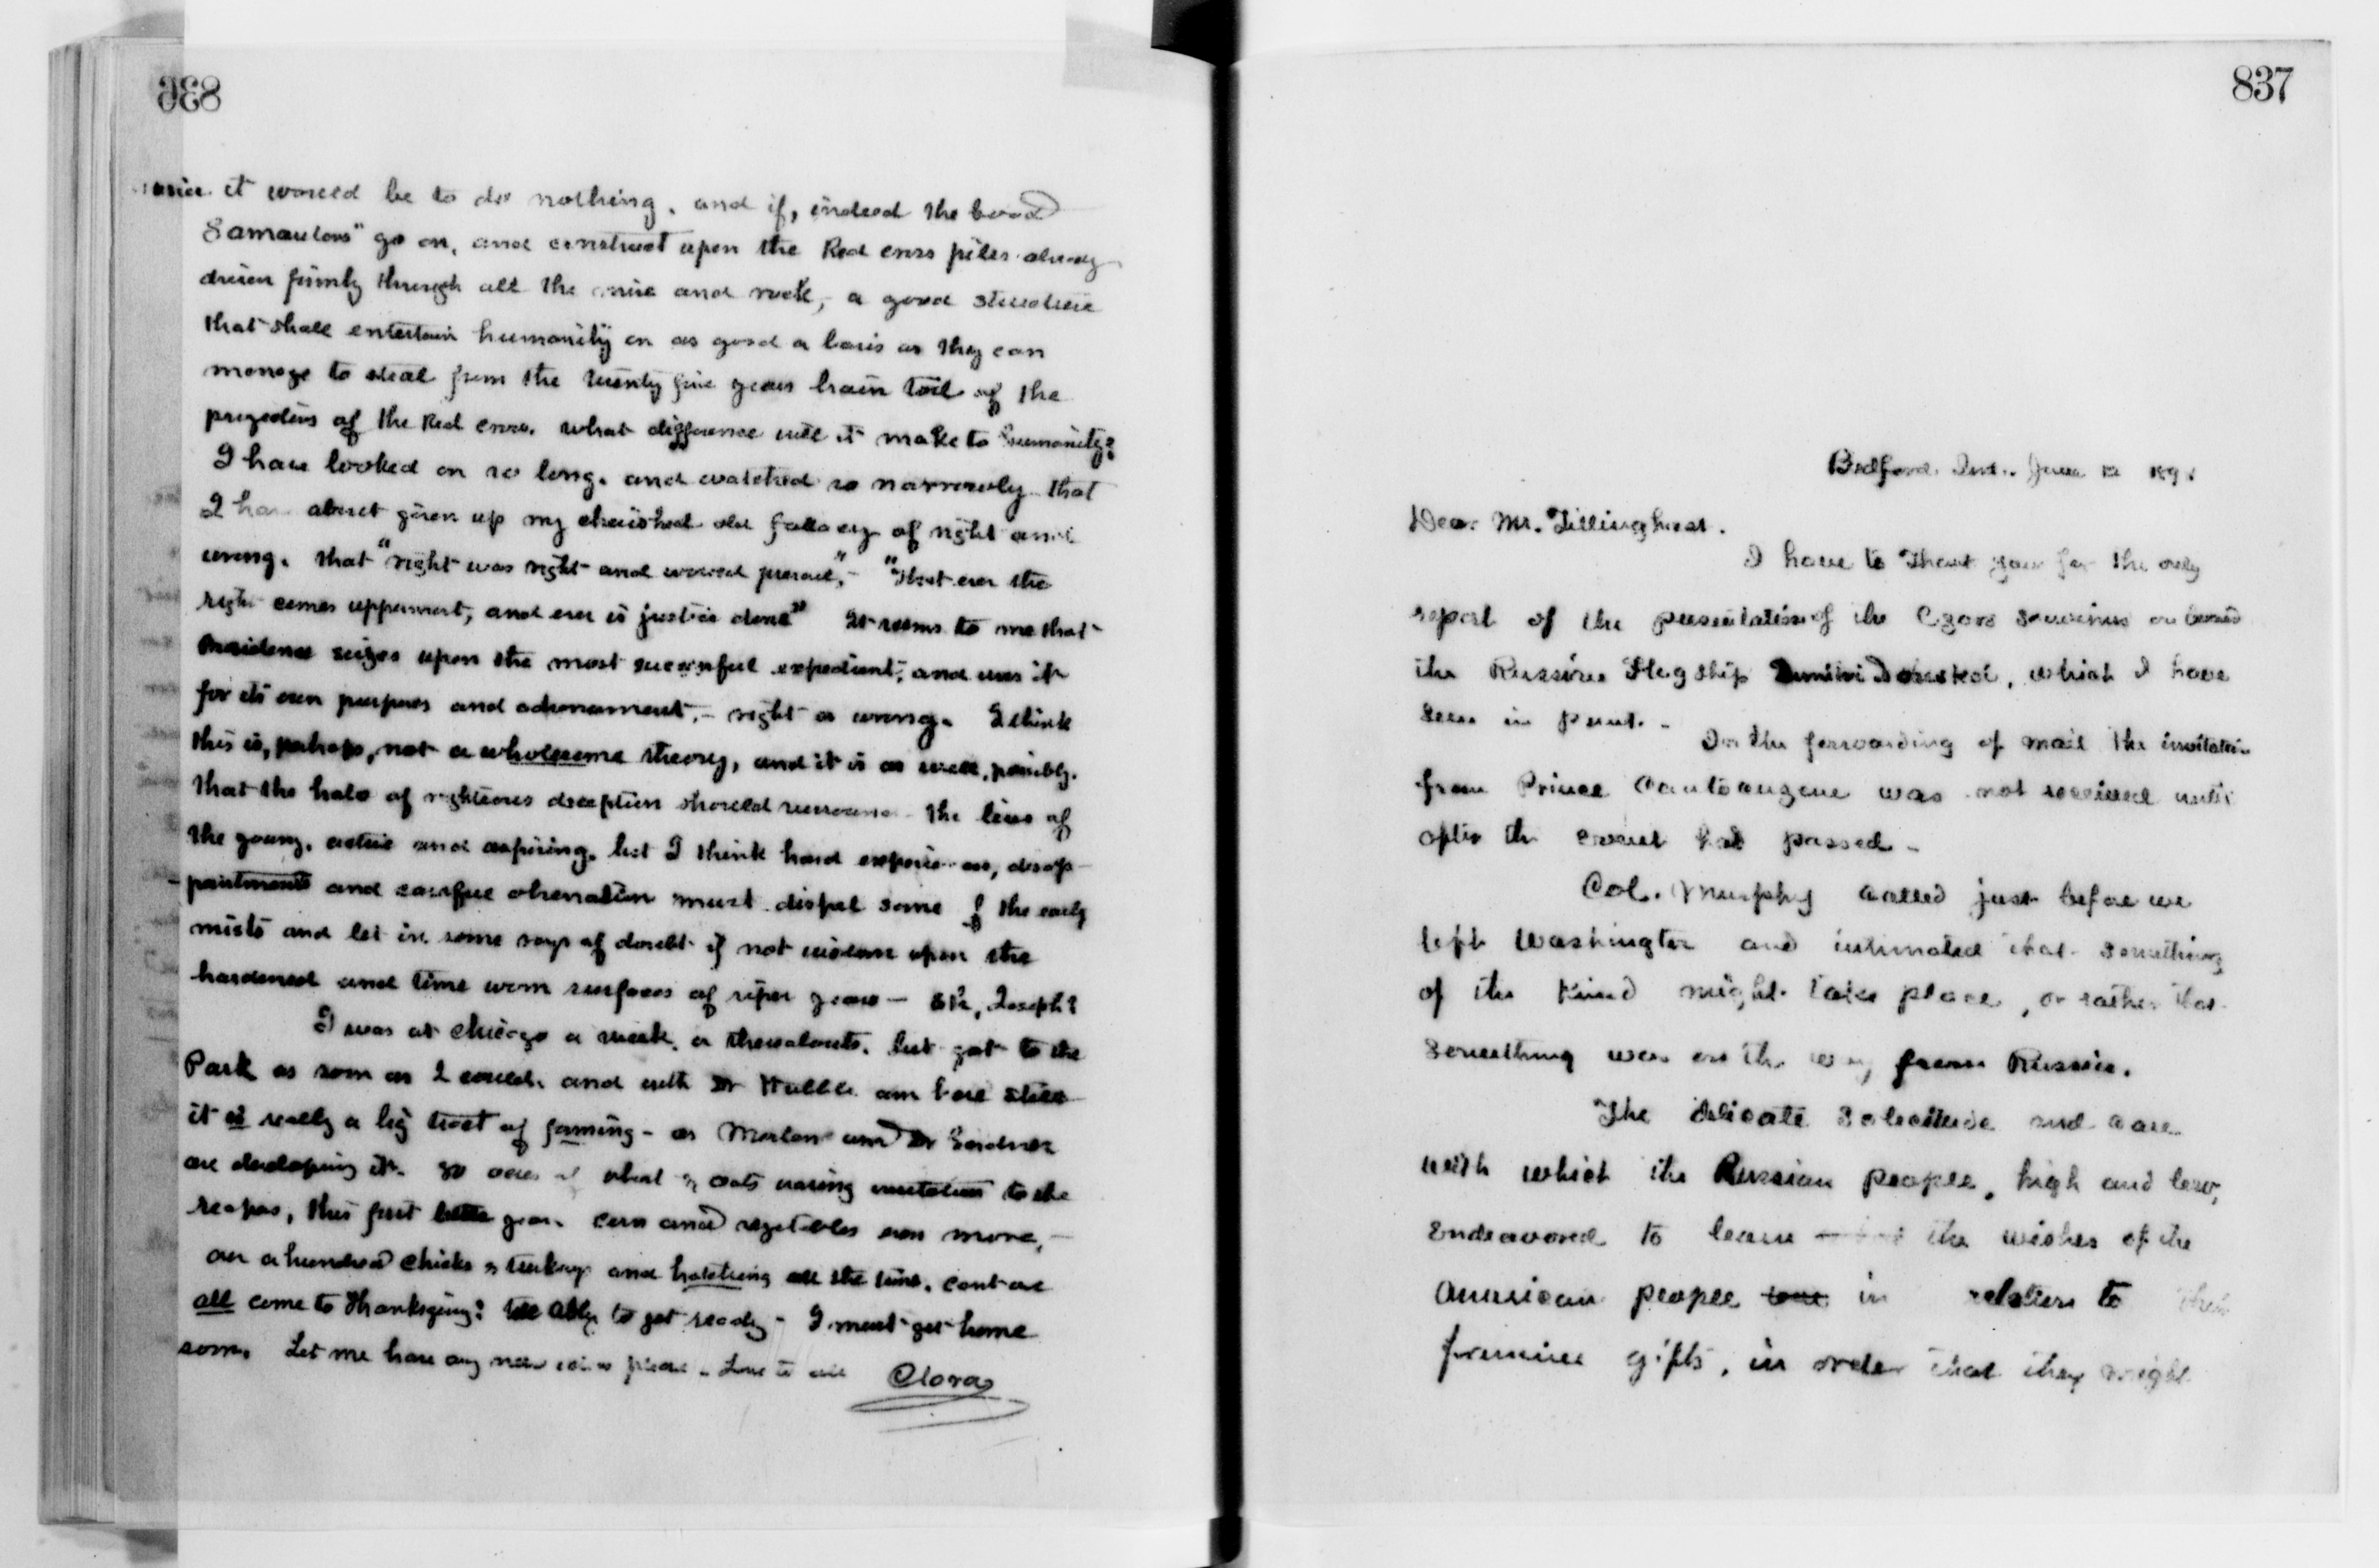 836
it would be to do nothing. and if, indeed the Good
Samaritans" go on, and construct upon the Red cross piles already
driven firmly through all the mire and rock, a good structure
that shall entertain humanity on as good a basis as they can
manage to steal from the twenty five years brain toil of the
of the Red cross. what difference will it make to humanity?
I have looked on so long. and watched so narrowly that
I have almost given up my cherished old fallacy of right and
wrong. that "right was right and would prevail", - "That ever the
right comes uppermost, and ever is justice done" It seems to me that
Providence seizes upon the most successful expedient, and uses it
for its own purposes and advancement, - right or wrong. I think
this is, perhaps, not a wholesome theory, and it is as well, possibly.
that the halo of righteous deception should surround the lives of
the young, active and aspiring. but I think hard experiences, disap-
-pointments and careful observation must dispel some of the early
mists and let in some rays of doubt if not wisdom upon the
hardened and time worn surfaces of riper years - Eh, Joseph?
I was at Chicago a week, or thereabouts. but got to the
Park as soon as I could. and with Dr Hubbell am here still
it is really a big treat of farming - as Morlan and Dr Gardner
are developing it. 80 acres of wheat & oats waving invitations to the
reapers, this first year. corn and vegetables even more, -
over a hundred chicks & turkeys and hatching all the time. cant we
all come to Thanksgiving? to get ready - I must get home
soon. Let me have any new please - Love to all Clara
837
Bedford. Ind.. June 12 189
Dear Mr. Tillinghast.
I have to thank you for the only
report of the presentation of the Czars souvenirs on board
the Russian Flag ship Dimitri Donskoi, which I have
seen in print. -
In the forwarding of mail the invitation
from Prince Cantacuzene was not received until
after the event had passed -
Col. Murphy called just before we
left Washington and intimated that something
of the kind might take place, or rather that
something was on the way from Russia.
The delicate solicitude and care
with which the Russian people, high and low,
endeavored to learn the wishes of the
American people in relation to their
gifts, in order that they might